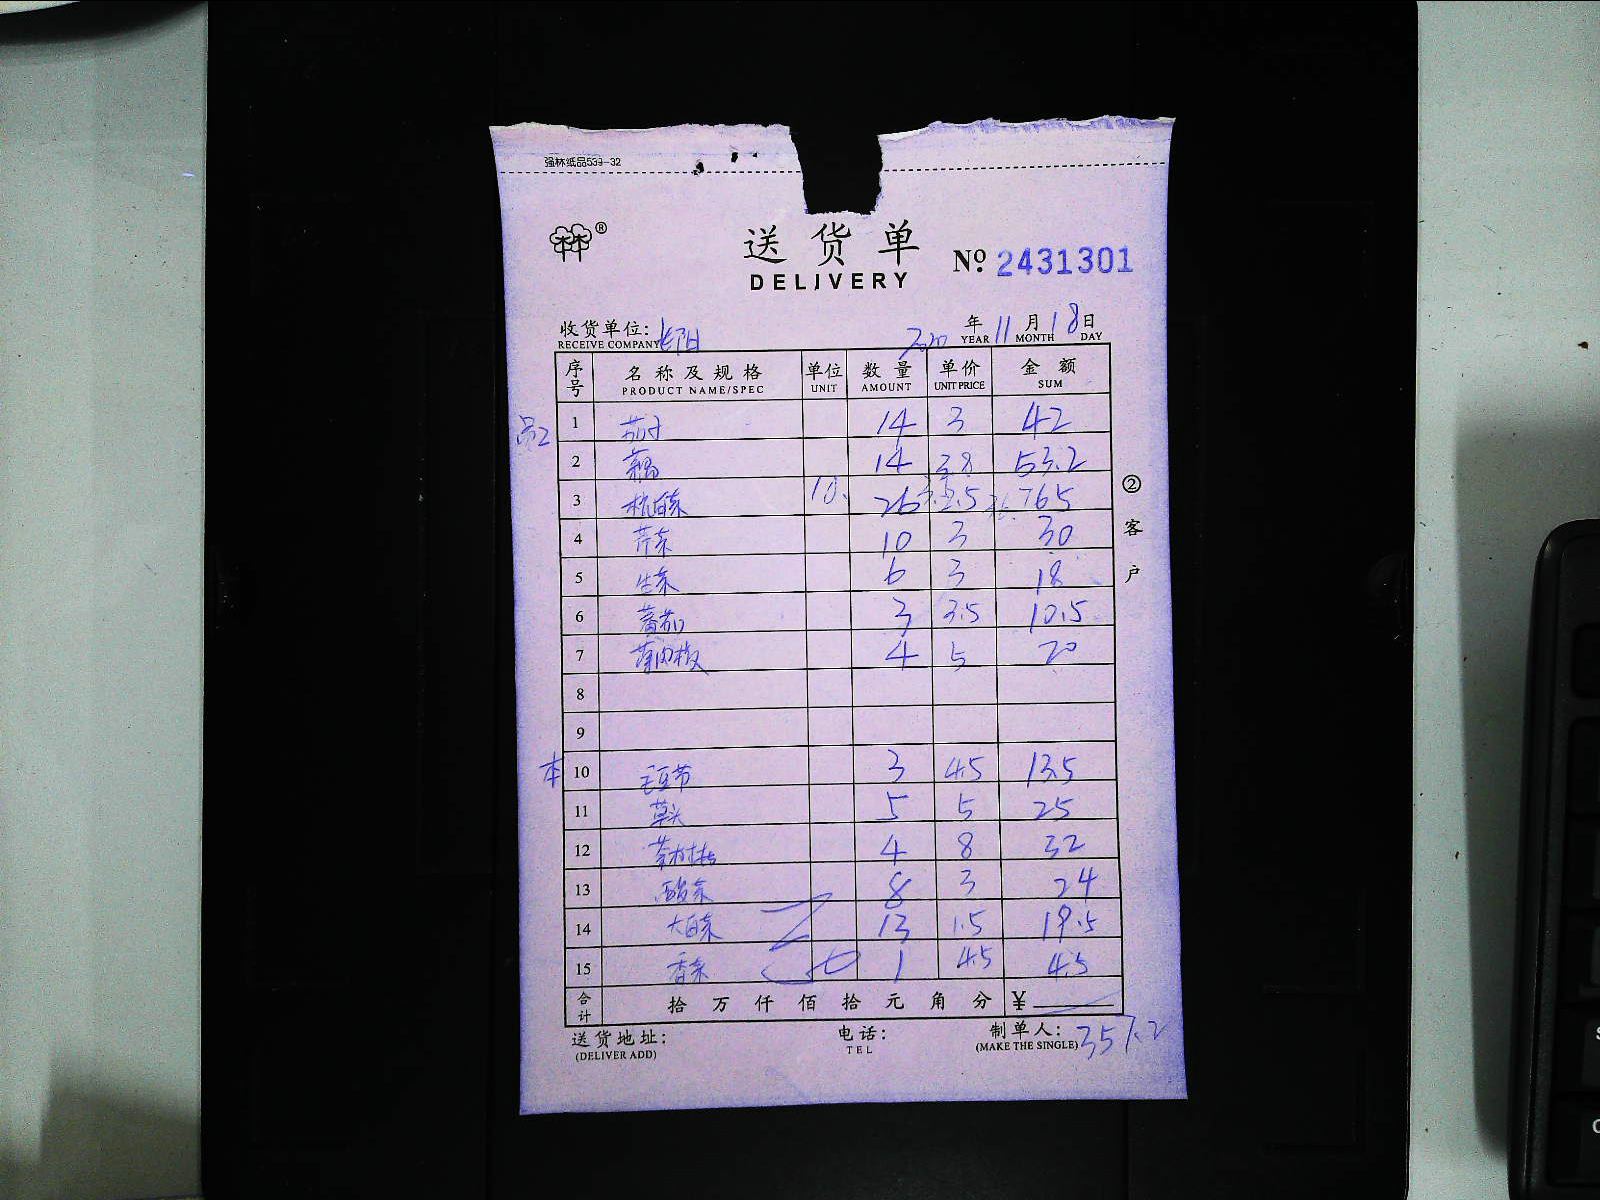 强林纸品539-32
送货单
DELIVERY
№ 2431301
收货单位:
年 11 月 18 日
RECEIVE COMPANY YEAR MONTH DAY
序号 名称及规格 单位 数量 单价 金额
PRODUCT NAME/SPEC UNIT AMOUNT UNIT PRICE SUM
1 茄子 14 3 42
2 藕 14 3.8 53.2
3 杭白菜 10. 26 2.5 65
4 芹菜 10 3 30
5 生菜 6 3 18
6 蕃茄 3 3.5 10.5
7 4 5 20
8
9
本 10 毛豆节 3 4.5 13.5
11 草头 5 5 25
12 茶树菇 4 8 32
13 酸菜 8 3 24
14 大白菜 13 1.5 19.5
15 香菜 1 4.5 4.5
合计 拾 万 仟 佰 拾 元 角 分 ¥
送货地址: 电话: 制单人:
(DELIVER ADD) TEL (MAKE THE SINGLE) 357.2
②客户